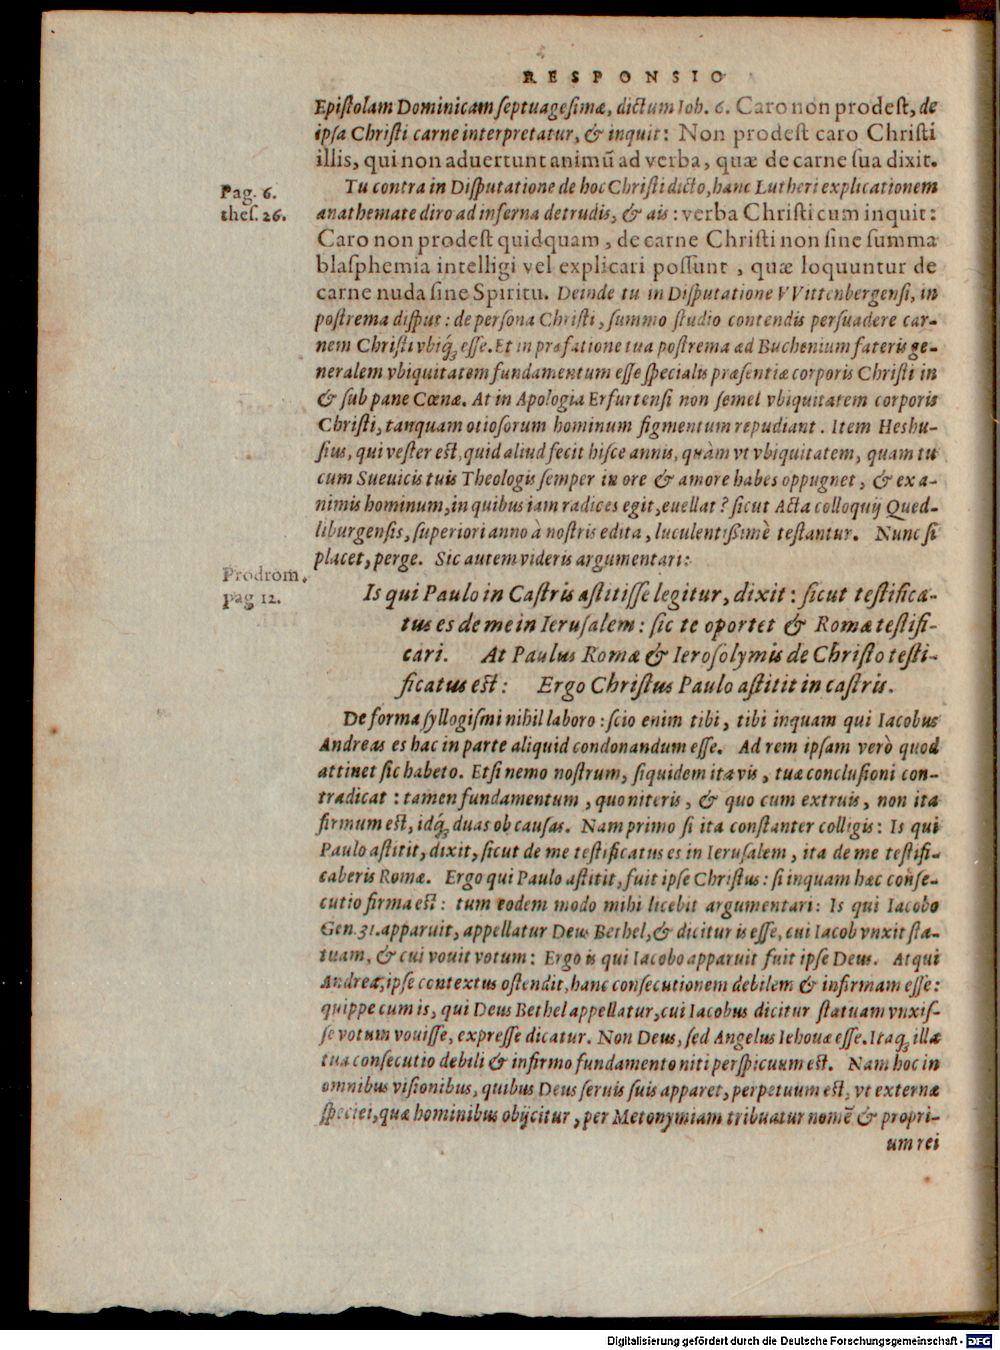 RESPONSIO
Epistolam Dominicam septuagesimæ, dictum Ioh. 6. Caro non prodest, de
ipsa Christi carne interpretatur, & inquit: Non prodest caro Christi
illis, qui non aduertunt animū ad verba, quæ de carne sua dixit.
Pag. 6.
thes. 26.
Tu contra in Disputatione de hoc Christi dicto, hanc Lutheri explicationem
anathemate diro ad inferna detrudis, & ais: verba Christi cum inquit:
Caro non prodest quidquam, de carne Christi non sine summa
blasphemia intelligi vel explicari possunt, quæ loquuntur de
carne nuda sine Spiritu. Deinde tu in Disputatione VVittenbergensi, in
postrema disput: de persona Christi, summo studio contendis persuadere car-
nem Christi vbiq́ʒ esse. Et in præfatione tua postrema ad Buchenium fateris ge-
neralem vbiquitatem fundamentum esse specialis præsentiæ corporis Christi in
& sub pane Cœnæ. At in Apologia Erfurtensi non semel vbiquitatem corporis
Christi, tanquam otiosorum hominum figmentum repudiant. Item Heshu-
sius, qui vester est, quid aliud fecit hisce annis, quàm vt vbiquitatem, quam tu
cum Sueuicis tuis Theologis semper in ore & amore habes oppugnet, & ex a-
nimis hominum, in quibus iam radices egit, euellat? sicut Acta colloquij Qued-
liburgensis, superiori anno à nostris edita, luculentissimè testantur. Nunc si
placet, perge. Sic autem videris argumentari:
Prodrom.
pag 12.
Is qui Paulo in Castris astitisse legitur, dixit: sicut testifica-
tus es de me in Ierusalem: sic te oportet & Romæ testifi-
cari. At Paulus Romæ & Ierosolymis de Christo testi-
ficatus est: Ergo Christus Paulo astitit in castris.
De forma syllogismi nihil laboro: scio enim tibi, tibi inquam qui Iacobus
Andreas es hac in parte aliquid condonandum esse. Ad rem ipsam verò quod
attinet sic habeto. Etsi nemo nostrum, siquidem ita vis, tuæ conclusioni con-
tradicat: tamen fundamentum, quo niteris, & quo cum extruis, non ita
firmum est, idq́ʒ duas ob causas. Nam primo si ita constanter colligis: Is qui
Paulo astitit, dixit, sicut de me testificatus es in Ierusalem, ita de me testifi-
caberis Romæ. Ergo qui Paulo astitit, fuit ipse Christus: si inquam hæc conse-
cutio firma est: tum eodem modo mihi licebit argumentari: Is qui Iacobo
Gen. 31. apparuit, appellatur Deus Bethel, & dicitur is esse, cui Iacob vnxit sta-
tuam, & cui vouit votum: Ergo is qui Iacobo apparuit fuit ipse Deus. Atqui
Andreæ, ipse contextus ostendit, hanc consecutionem debilem & infirmam esse:
quippe cum is, qui Deus Bethel appellatur, cui Iacobus dicitur statuam vnxis-
se votum vouisse, expresse dicatur. Non Deus, sed Angelus Iehouæ esse. Itaqʒ illa
tua consecutio debili & infirmo fundamento niti perspicuum est. Nam hoc in
omnibus visionibus, quibus Deus seruis suis apparet, perpetuum est, vt externæ
speciei, quæ hominibus obijcitur, per Metonymiam tribuatur nomē & propri-
um rei
Digitalisierung gefördert durch die Deutsche Forschungsgemeinschaft - DFG